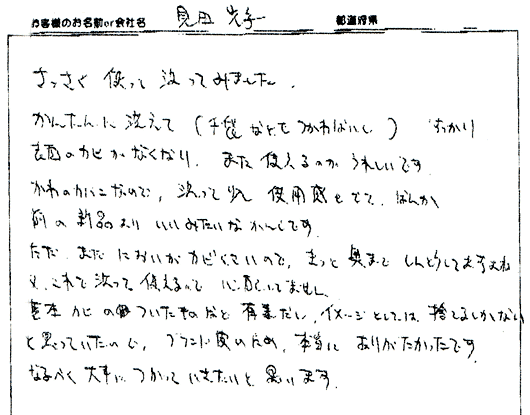 お客様のお名前or会社名 見田 都道府県
さっそく 使って 洗ってみました.
かんたんに 洗えて (手袋 などを つかわないし) すっかり
表面のカビがなくなり, また 使えるのが うれしいです.
かわのカバンなので, 洗って少し 使用感もでて, なんか
前の新品より いいみたいな かんじです.
ただ, まだ においが カビくさいので, きっと 奥まで しんとうしてますよね
これで 洗って 使えるので 心配してません.
基本 カビの ついたものだと 有害だし, イメージとしては, 捨てるしかない
と思っていたので, ブランド 本当に ありがたかったです.
なるべく 大事に つかって いきたいと 思います.